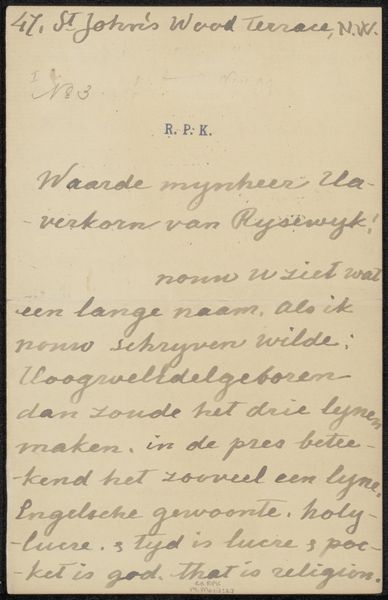 47, St John's Wood Terrace, N.W.
I
No 3
R. P. K.
Waarde mynheer Ha-
-verkorn van Rysewyk!
nouw U ziet wat
een lange naam. Als ik
nouw schryven wilde:
Hoogweledelgeboren
dan zoude het drie lynen
maken. in de pres betee-
kend het zooveel een lyne.
Engelsche gewoonte. holy-
lucre. & tyd is lucre & poc-
ket is god. that is religion.